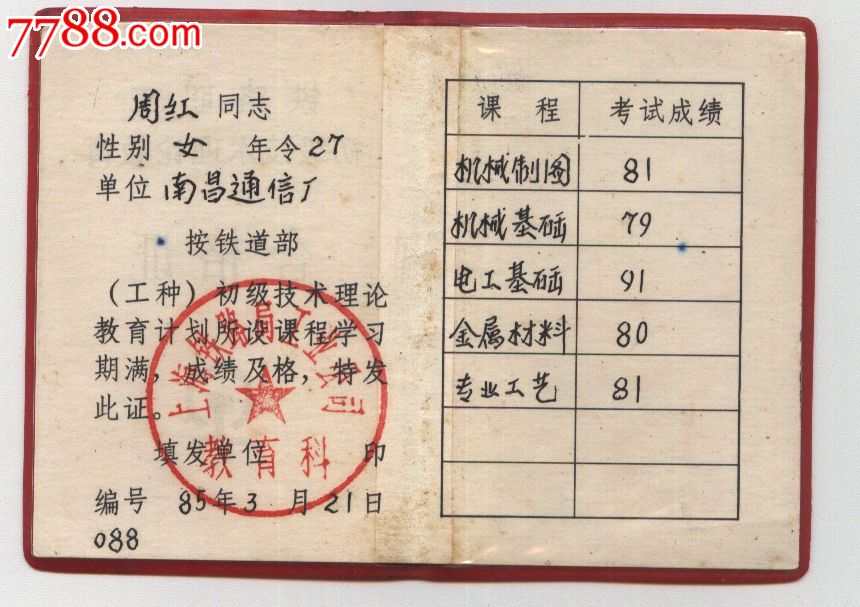 7788.com
周红 同志
性别 女 年令 27
单位 南昌通信厂
按铁道部
(工种)初级技术理论
教育计划所设课程学习
期满,成绩及格,特发
此证。
填发单位 印
编号 85年3月21日
088
上海铁路局工业公司
教育科
课程 考试成绩
机械制图 81
机械基础 79
电工基础 91
金属材料 80
专业工艺 81